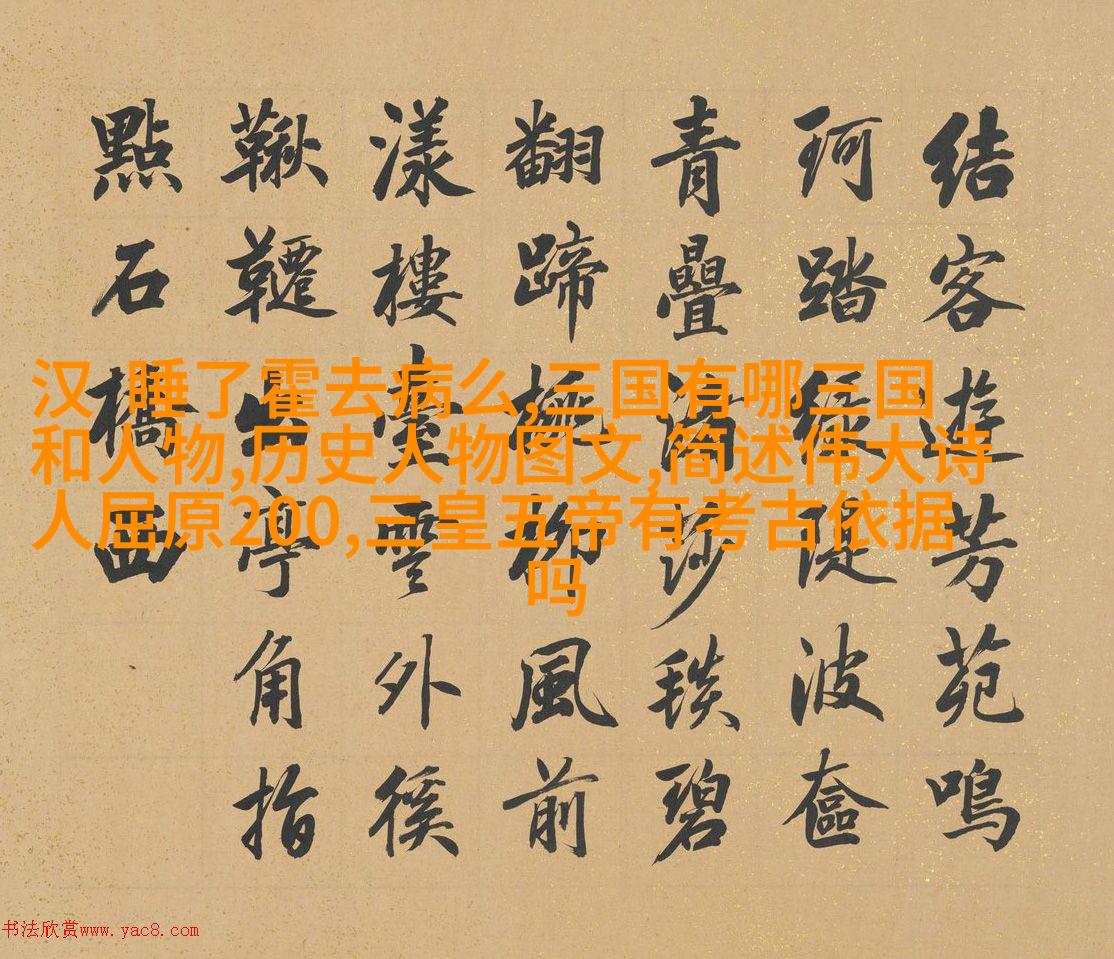 結客遊芳苑鳴
珂踏綠隄波奩
青疊滑莎毯碧
翻蹄柳風前
漾樓臺雲外徯
鞦韆出亭角指
點石橋西
汉 睡了霍去病么,三国有哪三国
和人物,历史人物图文,简述伟大诗
人屈原200,三皇五帝有考古依据
吗
书法欣赏www.yac8.com